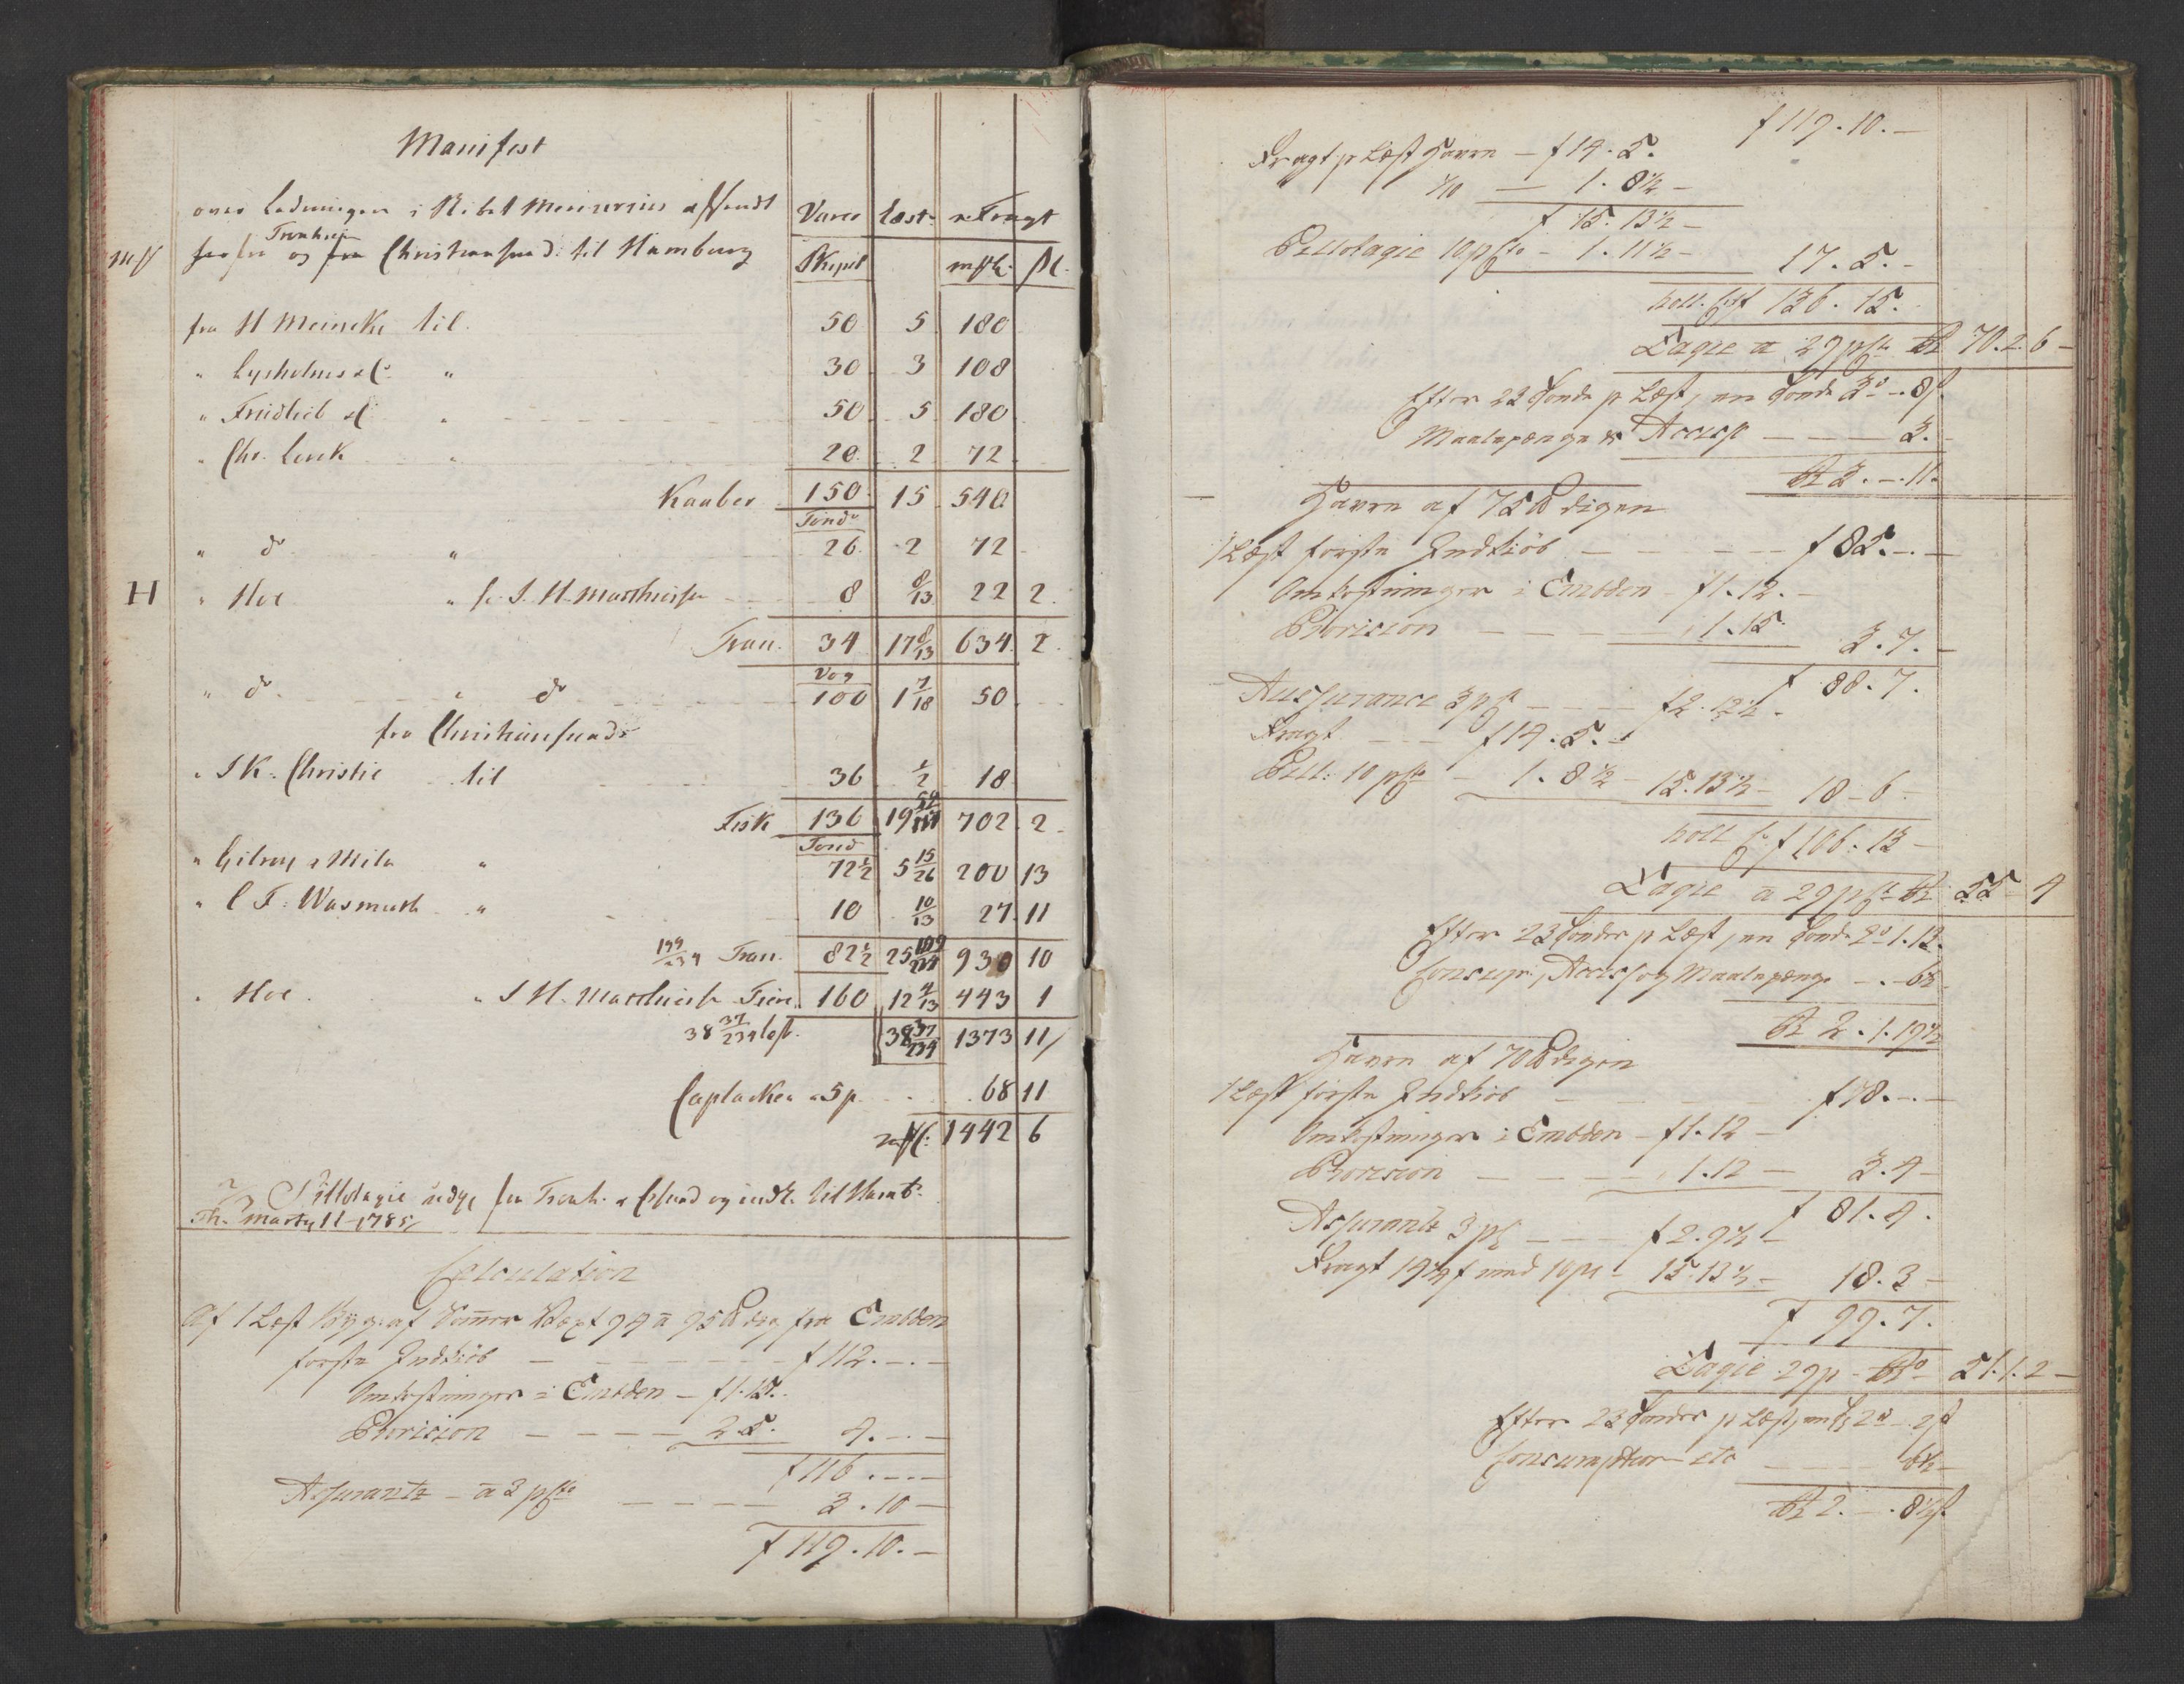 Manifest
over Ladningen i Skibet Mercurius afsendt | Varer | Læst | Fragt
Tronhiem
fra og fra Christiansund til Hamburg | Skipd | | mfl: | sl.
fra H Meincke til | 50 | 5 | 180
" Lysholms & Co " | 30 | 3 | 108
" Friidlieb & C " | 50 | 5 | 180
" Chr. Lerck " | 20 | 2 | 72
Kaaber | 150 | 15 | 540
Tønd
" do " | 26 | 2 | 72
H " Hoe " J. H. Matthiesen | 8 | 8/13 | 22 | 2
Tran | 34 | 17 8/13 | 634 | 2
Vog
" do " do | 100 | 1 7/18 | 50
fra Christiansund
" J K. Christie til | 36 | 1/2 | 18
Fisk | 136 | 19 | 702 | 2
Tønd
" Gilroy & Mila " | 72 1/2 | 5 15/26 | 200 | 13
" C F: Wasmuth " | 10 | 10/13 | 27 | 11
199/234 Tran | 82 1/2 | 25 | 930 | 10
" Hoe " J H. Matthiesen Tiere | 160 | 12 4/13 | 443 | 1
38 37/234 læst | | 38 37/234 | 1373 | 11
Caplacken a 5 p | 68 | 11
1442 | 6
Pillotagie udg fra Tronh. & Chsund og indk. til Hamb:
Th. Marty 11-1785
Calculation
Af 1 Læst Byg af Sommer Væxt 94 a 95 ℔ dig fra Embden
første Indkiøb — f 112.-.-
Omkostninger i Embden — f 1.15.
Provision — 2 5. 4.-.-
f 116.-.-
Assurantz — a 3 pCto — 3.10 —
f 119.10.—
f 119.10.—
Fragt pr Læst Havre — f 14.5.
1/10 — 1.8 1/2 —
f 15.13 1/2 —
Pillotagie 10 pCto — 1.11 1/2 — 17.5.-
holl. Ct f 136.15.
Lagie a 29 pCto Rd 70.2.6 —
Efter 22 Tønde pr Læst, en Tønde 3d -.8s.
Maalepænge & Accise — 3.
Rd 3.-.11.
Havre af 75 ℔ digen
1 Læst første Indkiøb — f 85.-.—
Omkostninger i Embden — f 1.12.—
Provision — 1.15. 3.7.—
f 88.7.
Assurance 3 pC — f 2.12 1/2 —
Fragt — f 14.5.-
Pill: 10 pCto — 1.8 1/2 — 15.13 1/2 — 18-6 —
holl C. f 106.13 —
Lagie a 29 pCto Rd 55-4
Efter 23 Tønder pr Læst, en Tønde 2d 1.13.
Consump:, Accis og Maalepænge — -.6 1/2
Rd 2.1.19 1/2
Havre af 70 ℔ digen
1 Læst første Indkiøb — f 78.-.—
Omkostninger i Embden — f 1.12 —
Provision — 1.12 — 3.4 —
f 81.4.
Assurantz 3 pC — f 2.9 1/2 —
Fragt 14 1/4 f med 10 pCt — 15.13 1/2 — 18.3 —
f 99.7.
Lagie 29 p — Rd 51.1.2 —
Efter 23 Tønder pr Læst, en Td 2d -.2s
Consumption etc — 6 1/2 —
Rd 2.-.8 1/2 s.